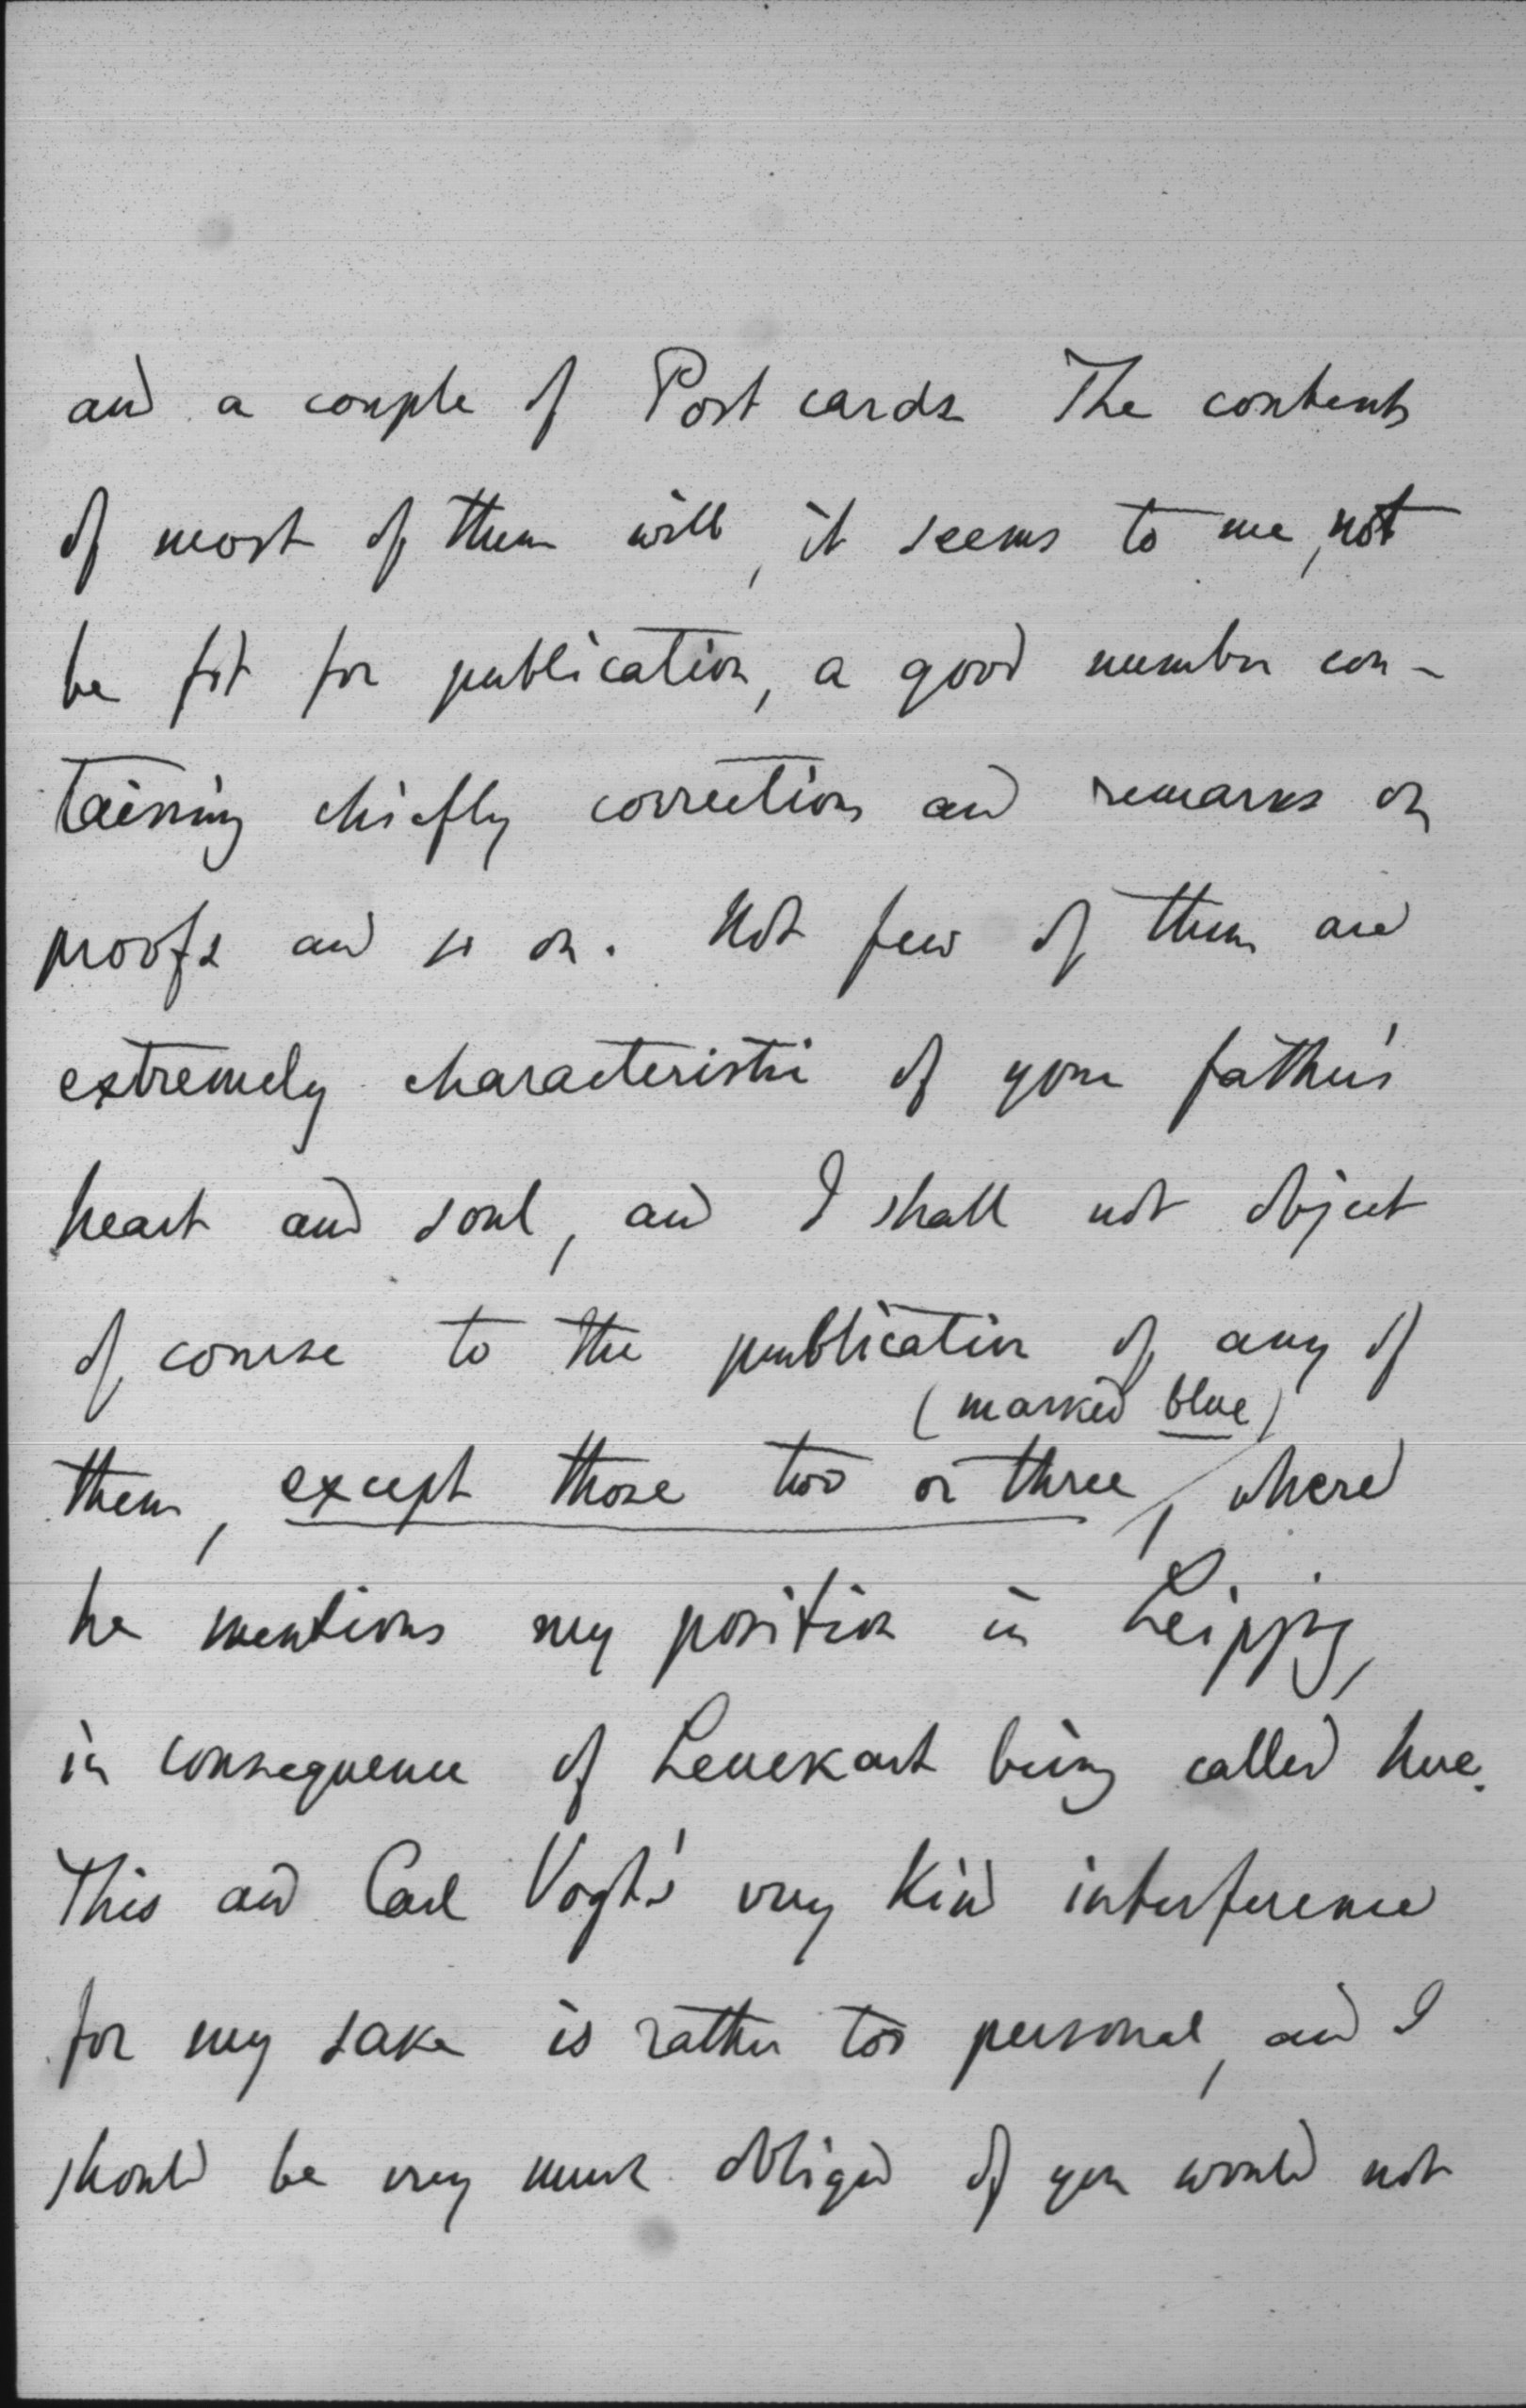 and a couple of Post cards The contents
of most of them will, it seems to me, not
be fit for publication, a good number con-
taining chiefly corrections and remarks on
proofs and so on. Not few of them are
extremely characteristic of your father's
heart and soul, and I shall not object
of course to the publication of any of
(marked blue)
them, except those two or three, where
he mentions my position in Leipzig,
in consequence of Leuckart being called here.
This and Carl Vogt's very kind interference
for my sake is rather too personal, and I
should be very much obliged if you would not